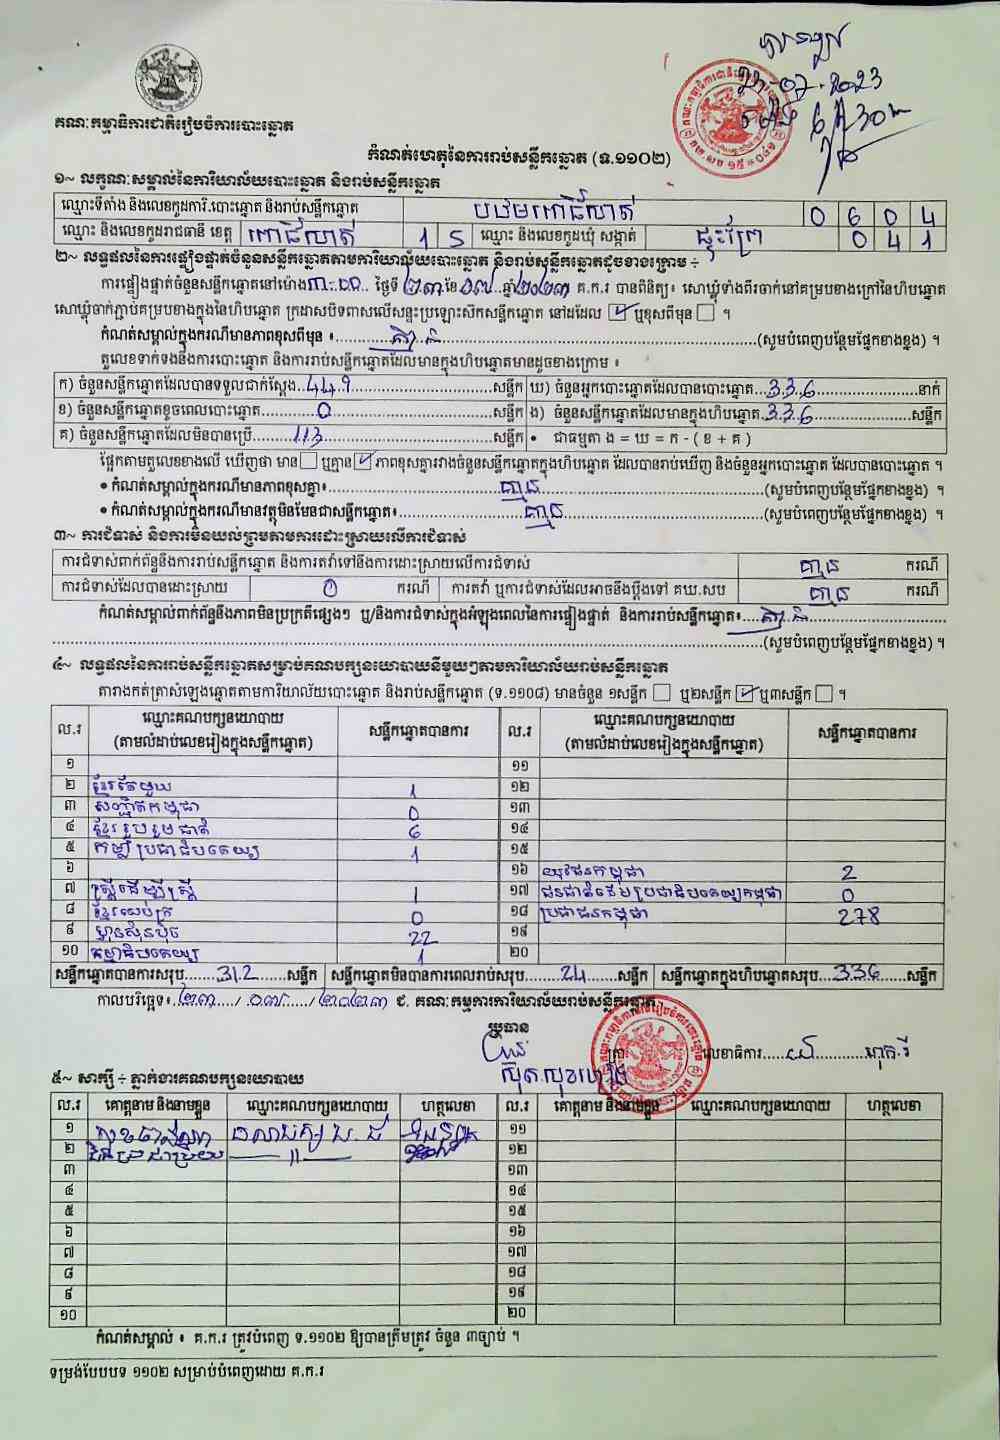 គណៈកម្មាធិការជាតិរៀបចំការបោះឆ្នោត
23-07-2023
កំណត់ហេតុនៃការរាប់សន្លឹកឆ្នោត (ទ.១១០២)
១~ លក្ខណៈសម្គាល់នៃការិយាល័យបោះឆ្នោត និងរាប់សន្លឹកឆ្នោត
ឈ្មោះទីតាំង និងលេខកូដការិ.បោះឆ្នោត និងរាប់សន្លឹកឆ្នោត បឋមពោធិ៍លាត់ 0 6 0 4
ឈ្មោះ និងលេខកូដរាជធានី ខេត្ត ពោធិ៍សាត់ 1 5 ឈ្មោះ និងលេខកូដឃុំ សង្កាត់ ផ្ទះព្រៃ 0 4 1
២~ លទ្ធផលនៃការផ្ទៀងផ្ទាត់ចំនួនសន្លឹកឆ្នោតតាមការិយាល័យបោះឆ្នោត និងរាប់សន្លឹកឆ្នោតដូចខាងក្រោម ÷
ការផ្ទៀងផ្ទាត់ចំនួនសន្លឹកឆ្នោតនៅម៉ោង ៣:០០ ថ្ងៃទី ២៣ ខែ ០៧ ឆ្នាំ ២០២៣ គ.ក.រ បានពិនិត្យ៖ សោឃ្លុំទាំងពីរចាក់នៅគម្របខាងក្រៅនៃហិបឆ្នោត
សោឃ្លុំចាក់ភ្ជាប់គម្របខាងក្នុងនៃហិបឆ្នោត ក្រដាសបិទពាសលើសន្ទះប្រឡោះស៊កសន្លឹកឆ្នោត នៅដដែល ☑ ឬខុសពីមុន ☐ ។
កំណត់សម្គាល់ក្នុងករណីមានភាពខុសពីមុន ៖ គ្មាន (សូមបំពេញបន្ថែមផ្នែកខាងខ្នង) ។
តួលេខទាក់ទងនឹងការបោះឆ្នោត និងការរាប់សន្លឹកឆ្នោតដែលមានក្នុងហិបឆ្នោតមានដូចខាងក្រោម ៖
ក) ចំនួនសន្លឹកឆ្នោតដែលបានទទួលជាក់ស្ដែង 449 សន្លឹក ឃ) ចំនួនអ្នកបោះឆ្នោតដែលបានបោះឆ្នោត 336 នាក់
ខ) ចំនួនសន្លឹកឆ្នោតខូចពេលបោះឆ្នោត 0 សន្លឹក ង) ចំនួនសន្លឹកឆ្នោតដែលមានក្នុងហិបឆ្នោត 336 សន្លឹក
គ) ចំនួនសន្លឹកឆ្នោតដែលមិនបានប្រើ 113 សន្លឹក • ជាធម្មតា ង = ឃ = ក - ( ខ + គ )
ផ្អែកតាមតួលេខខាងលើ ឃើញថា មាន ☐ ឬគ្មាន ☑ ភាពខុសគ្នារវាងចំនួនសន្លឹកឆ្នោតក្នុងហិបឆ្នោត ដែលបានរាប់ឃើញ និងចំនួនអ្នកបោះឆ្នោត ដែលបានបោះឆ្នោត ។
• កំណត់សម្គាល់ក្នុងករណីមានភាពខុសគ្នា៖ គ្មាន (សូមបំពេញបន្ថែមផ្នែកខាងខ្នង) ។
• កំណត់សម្គាល់ក្នុងករណីមានវត្ថុមិនមែនជាសន្លឹកឆ្នោត៖ គ្មាន (សូមបំពេញបន្ថែមផ្នែកខាងខ្នង) ។
៣~ ការជំទាស់ និងការមិនយល់ព្រមតាមការដោះស្រាយលើការជំទាស់
ការជំទាស់ពាក់ព័ន្ធនឹងការរាប់សន្លឹកឆ្នោត និងការតវ៉ាទៅនឹងការដោះស្រាយលើការជំទាស់ គ្មាន ករណី
ការជំទាស់ដែលបានដោះស្រាយ 0 ករណី ការតវ៉ា ឬការជំទាស់ដែលអាចនឹងប្ដឹងទៅ គឃ.សប គ្មាន ករណី
កំណត់សម្គាល់ពាក់ព័ន្ធនឹងភាពមិនប្រក្រតីផ្សេងៗ ឬ/និងការជំទាស់ក្នុងអំឡុងពេលនៃការផ្ទៀងផ្ទាត់ និងការរាប់សន្លឹកឆ្នោត៖ គ្មាន
(សូមបំពេញបន្ថែមផ្នែកខាងខ្នង) ។
៤~ លទ្ធផលនៃការរាប់សន្លឹកឆ្នោតសម្រាប់គណបក្សនយោបាយនីមួយៗតាមការិយាល័យរាប់សន្លឹកឆ្នោត
តារាងកត់ត្រាសំឡេងឆ្នោតតាមការិយាល័យបោះឆ្នោត និងរាប់សន្លឹកឆ្នោត (ទ.១១០៨) មានចំនួន ១សន្លឹក ☐ ឬ២សន្លឹក ☑ ឬ៣សន្លឹក ☐ ។
ល.រ ឈ្មោះគណបក្សនយោបាយ (តាមលំដាប់លេខរៀងក្នុងសន្លឹកឆ្នោត) សន្លឹកឆ្នោតបានការ ល.រ ឈ្មោះគណបក្សនយោបាយ (តាមលំដាប់លេខរៀងក្នុងសន្លឹកឆ្នោត) សន្លឹកឆ្នោតបានការ
១ ១១
២ ខ្មែរតែមួយ 1 ១២
៣ សញ្ជាតិកម្ពុជា 0 ១៣
៤ ខ្មែររួបរួមជាតិ 6 ១៤
៥ កម្លាំងប្រជាធិបតេយ្យ 1 ១៥
៦ ១៦ យុវជនកម្ពុជា 2
៧ ស្ត្រីដើម្បីស្ត្រី 1 ១៧ ជនជាតិដើមប្រជាធិបតេយ្យកម្ពុជា 0
៨ ខ្មែរឈប់ក្រ 0 ១៨ ប្រជាជនកម្ពុជា 278
៩ ហ៊្វុនស៊ិនប៉ិច 22 ១៩
១០ ធម្មាធិបតេយ្យ 1 ២០
សន្លឹកឆ្នោតបានការសរុប 312 សន្លឹក សន្លឹកឆ្នោតមិនបានការពេលរាប់សរុប 24 សន្លឹក សន្លឹកឆ្នោតក្នុងហិបឆ្នោតសរុប 336 សន្លឹក
កាលបរិច្ឆេទ៖ ២៣ / ០៧ / ២០២៣ ជ. គណៈកម្មការការិយាល័យរាប់សន្លឹកឆ្នោត
ប្រធាន
លេខាធិការ
៥~ សាក្សី ÷ ភ្នាក់ងារគណបក្សនយោបាយ
ល.រ គោត្តនាម និងនាមខ្លួន ឈ្មោះគណបក្សនយោបាយ ហត្ថលេខា ល.រ គោត្តនាម និងនាមខ្លួន ឈ្មោះគណបក្សនយោបាយ ហត្ថលេខា
១ ១១
២ —〃— ១២
៣ ១៣
៤ ១៤
៥ ១៥
៦ ១៦
៧ ១៧
៨ ១៨
៩ ១៩
១០ ២០
កំណត់សម្គាល់ ៖ គ.ក.រ ត្រូវបំពេញ ទ.១១០២ ឱ្យបានត្រឹមត្រូវ ចំនួន ៣ច្បាប់ ។
ទម្រង់បែបបទ ១១០២ សម្រាប់បំពេញដោយ គ.ក.រ